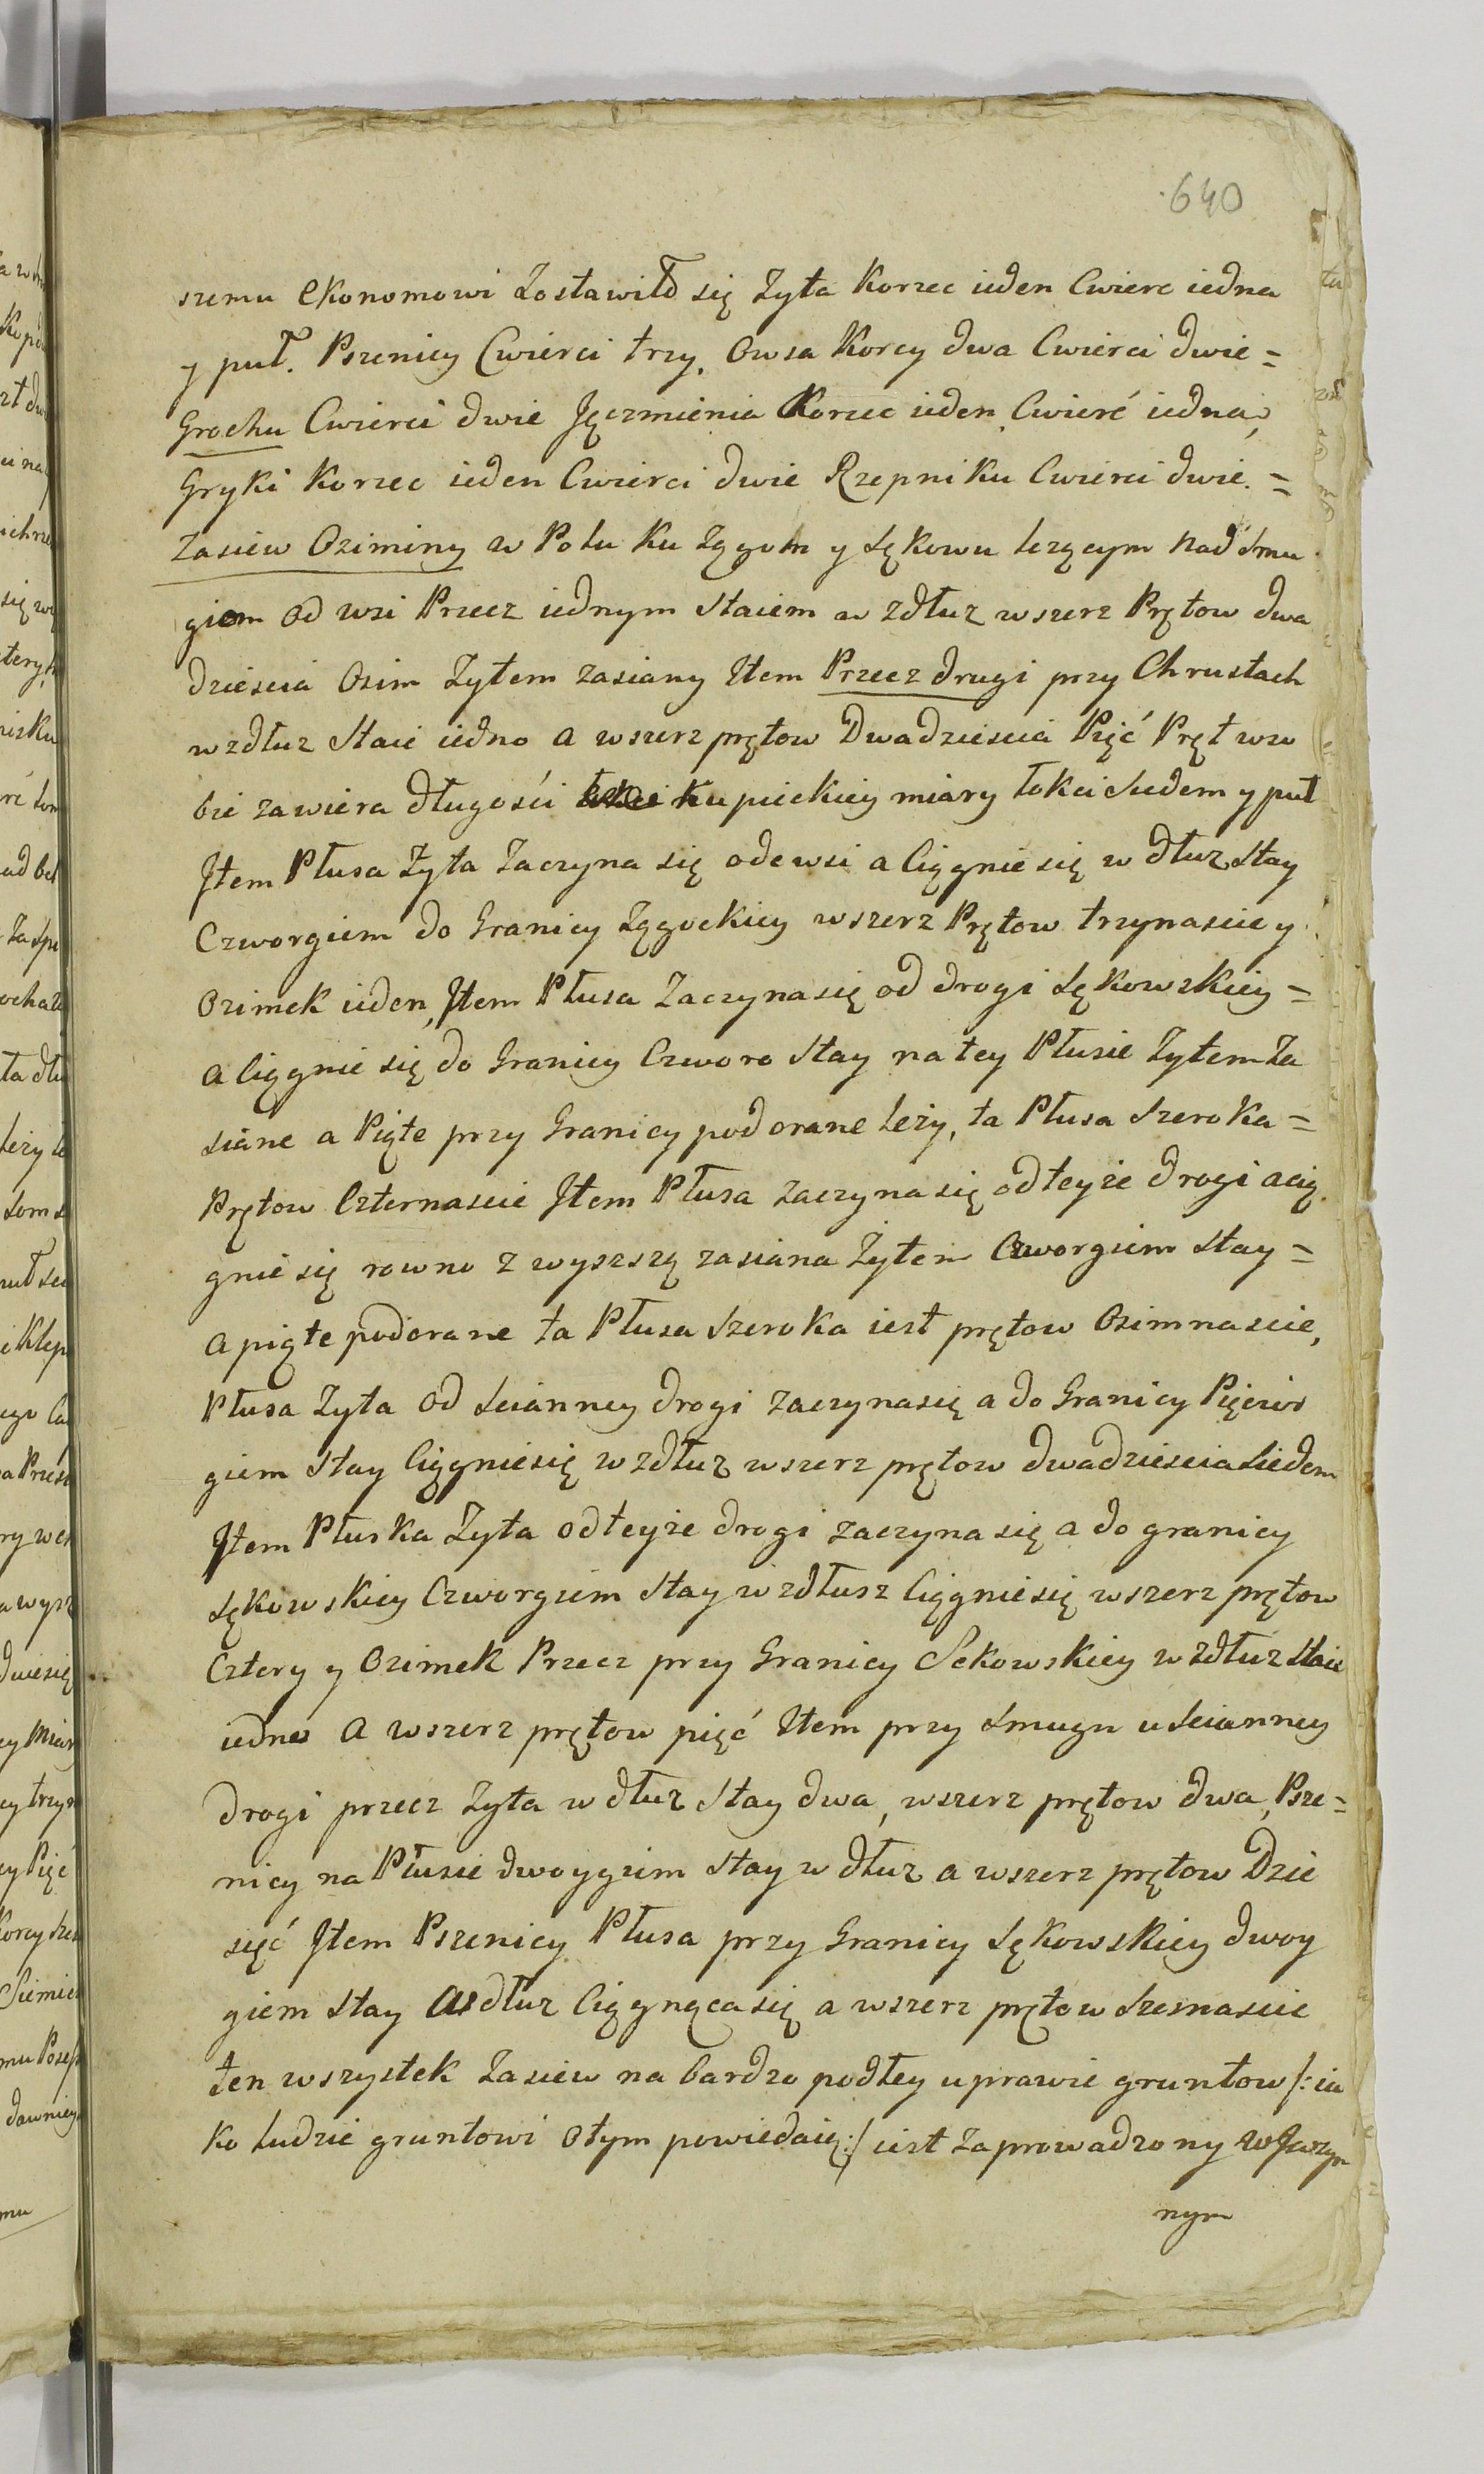 640
szemu Ekonomowi Zostawiło się Zyta Korzec ieden Cwierc iedna
y puł. Pszenicy Cwierci trzy, Owsa Korcy dwa Cwierci dwie =
Grochu Cwierci dwie Jęczmienia Korzec ieden Cwierć iedna,
Gryki Korzec ieden Cwierci dwie Rzepniku Cwierci dwie. =
Zasiew Oziminy w Polu Ku Zągotu y Sękowu lezącym nad Smu
giem od wsi Przecz iednym Staiem w zdłuz wszerz Prętow dwa
dziescia Osim Zytem zasiany Item Przecz drugi przy Chrustach
wzdłuz Staie iedno a wszerz prętow Dwadziescia Pięć Pręt wso
bie zawiera długości Kupieckiey miary łokci Siedem y puł
Item Płusa Zyta Zaczyna się ode wsi a Ciągnie się w dłuz Stay
Czworgiem do Granicy Zągockiey wszerz Prętow trzynascie y
Ozimek ieden, Item Płusa Zaczyna się od drogi Sękowskiey =
a Ciągnie się do Granicy Czworo Stay na tey Płusie Zytem Za
siane a Piąte przy Granicy podorane leży, ta Płusa Szeroka =
Prętow Czternascie Item Płusa zaczyna się od teyże drogi a cią
gnie się rowno z wyszszą zasiana Żytem Czworgiem Stay =
a piąte podorane ta Płusa Szeroka iest prętow Osimnascie,
Płusa Zyta od Scianney drogi zaczyna się a do Granicy Pięcior
giem Stay Ciągnie się w zdłuz wszerz prętow dwadziescia Siedem
Item Płuska Zyta od teyże drogi zaczyna się a do granicy
Sękowskiey Czworgiem Stay w zdłusz Ciągnie się wszerz prętow
Cztery y Ozimek Przecz przy Granicy Sekowskiey w zdłuz Staie
iedno a wszerz prętow pięć Item przy Smugu u Scianney
drogi przecz Zyta w dłuz Stay dwa, wszerz prętow dwa, Psze=
nicy na Płusie dwoygiem Stay w dłuz a wszerz prętow Dzie
sięć Item Pszenicy Płusa przy Granicy Sękowskiey dwoy
giem Stay wdłuz Ciągnąca się a wszerz prętow Szesnascie
ten wszystek Zasiew na bardzo podłey uprawie gruntow /: ia
ko ludzie gruntowi o tym powiedaią :/ iest Zaprowadzony w Jarzyn
nym